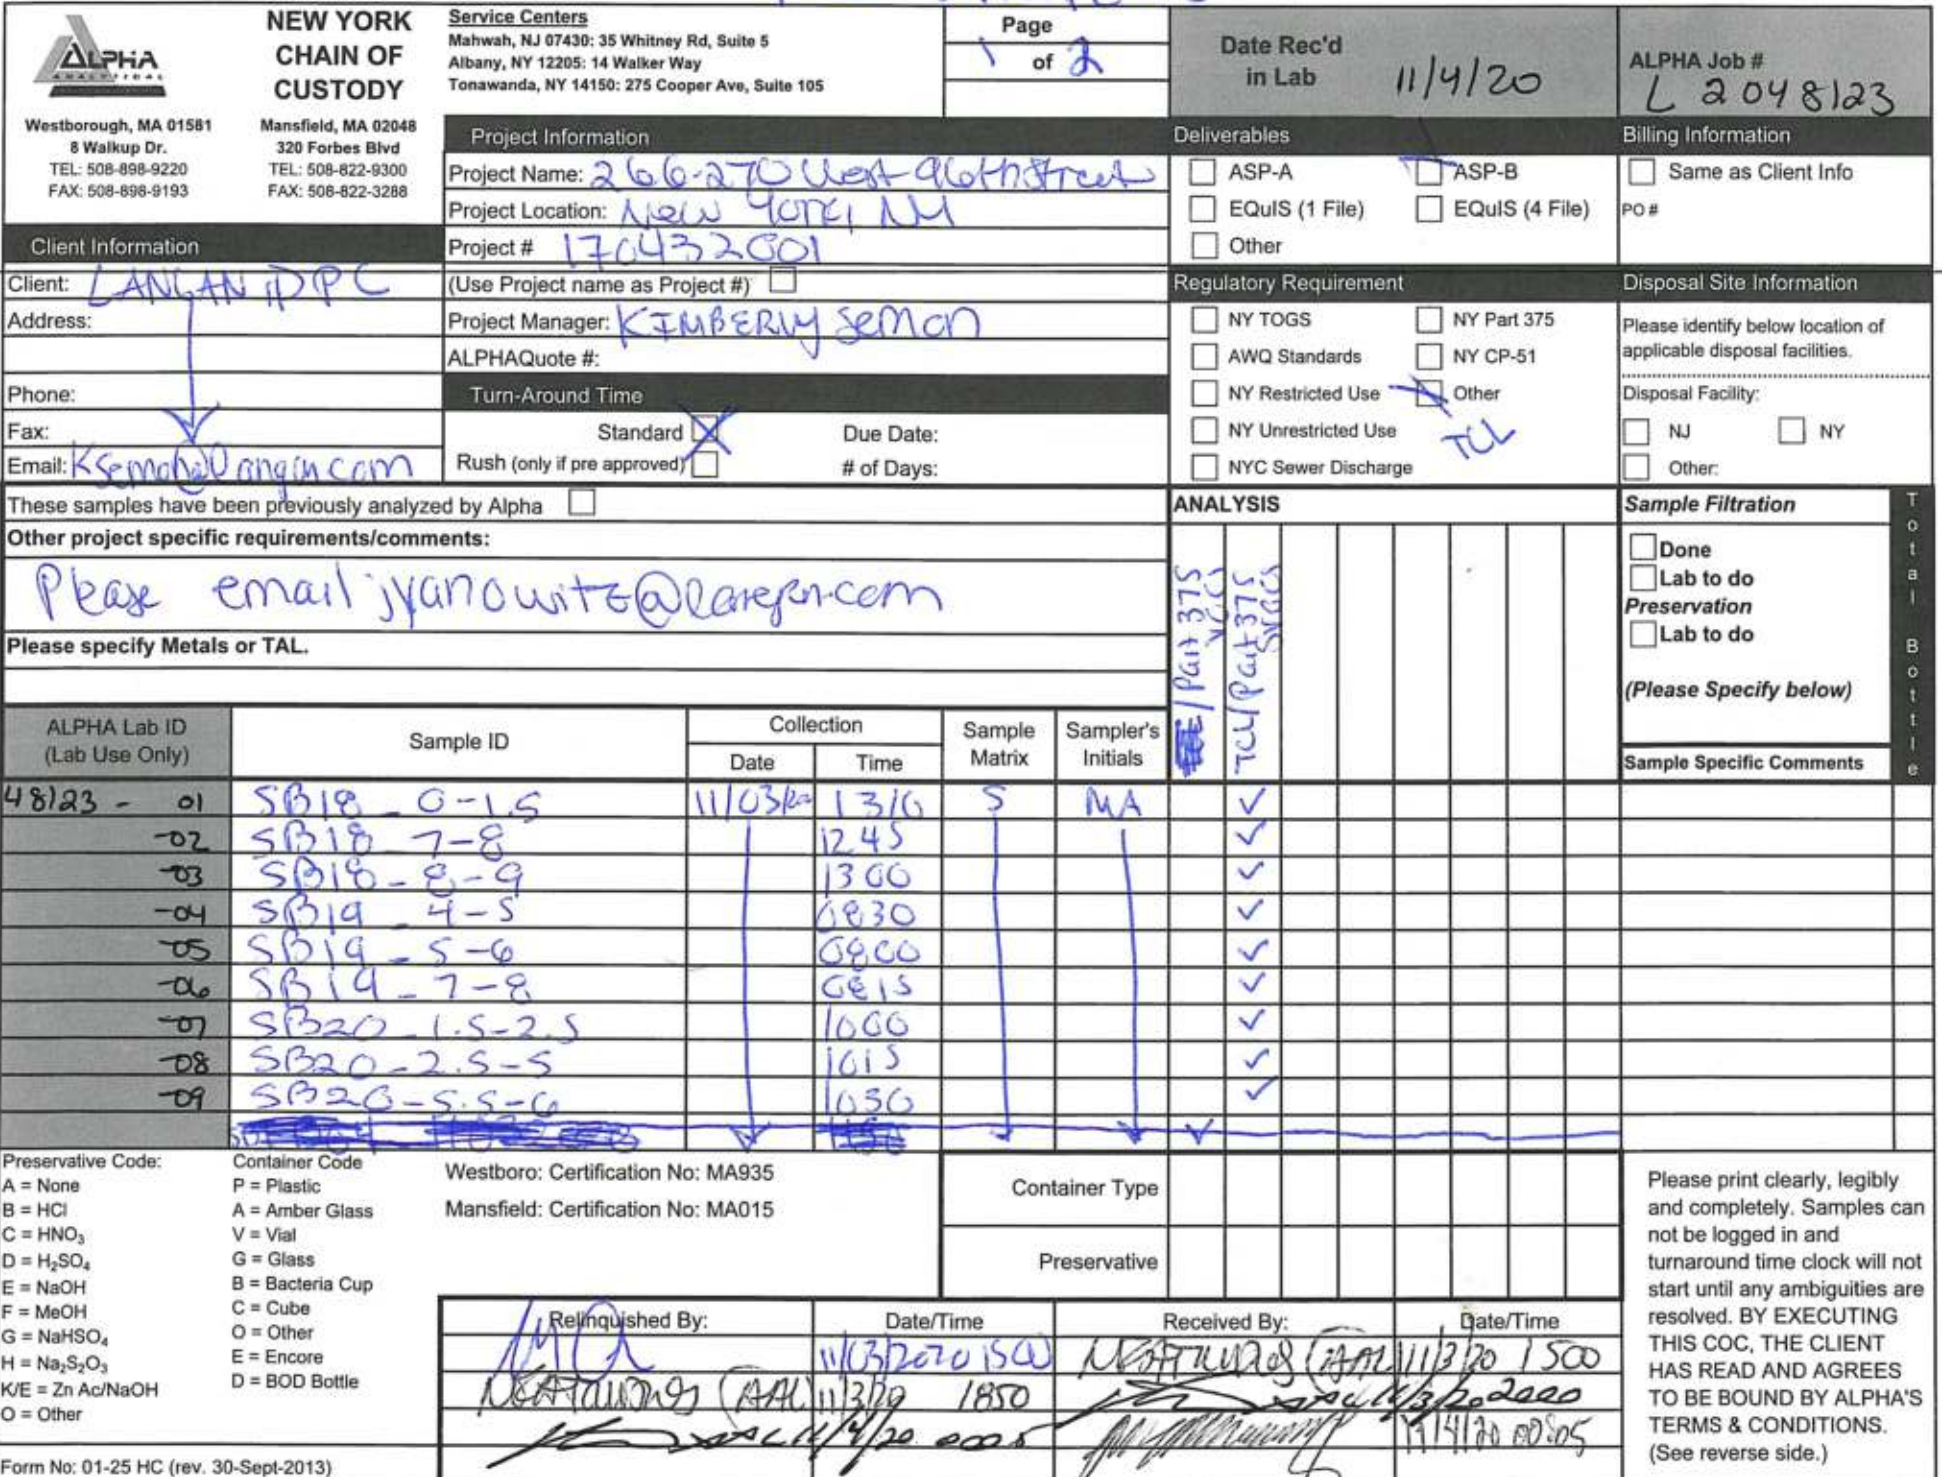 ALPHA
ANALYTICAL
Westborough, MA 01581
8 Walkup Dr.
TEL: 508-898-9220
FAX: 508-898-9193
NEW YORK
CHAIN OF
CUSTODY
Mansfield, MA 02048
320 Forbes Blvd
TEL: 508-822-9300
FAX: 508-822-3288
Service Centers
Mahwah, NJ 07430: 35 Whitney Rd, Suite 5
Albany, NY 12205: 14 Walker Way
Tonawanda, NY 14150: 275 Cooper Ave, Suite 105
Page
1 of 2
Date Rec'd
in Lab 11/4/20
ALPHA Job #
L 2048123
Client Information
Client: LANGAN DPC
Address:
Phone:
Fax:
Email: Ksemon@langan.com
Project Information
Project Name: 266-270 West 96th Street
Project Location: New York, NY
Project # 170432001
(Use Project name as Project #)
Project Manager: KIMBERLY Semon
ALPHAQuote #:
Turn-Around Time
Standard X Due Date:
Rush (only if pre approved) # of Days:
Deliverables
ASP-A ASP-B
EQuIS (1 File) EQuIS (4 File)
Other
Regulatory Requirement
NY TOGS NY Part 375
AWQ Standards NY CP-51
NY Restricted Use Other
NY Unrestricted Use TCL
NYC Sewer Discharge
Billing Information
Same as Client Info
PO #
Disposal Site Information
Please identify below location of
applicable disposal facilities.
Disposal Facility:
NJ NY
Other:
These samples have been previously analyzed by Alpha
Other project specific requirements/comments:
Please email jyanowitz@langan.com
Please specify Metals or TAL.
ANALYSIS
/Part 375 VOCs
TCL/Part 375 SVOCs
Sample Filtration
Done
Lab to do
Preservation
Lab to do
(Please Specify below)
Total Bottle
ALPHA Lab ID
(Lab Use Only)
Sample ID
Collection
Date Time
Sample
Matrix
Sampler's
Initials
Sample Specific Comments
48123 - 01 SB18_0-1.5 11/03/20 1310 S MA ✓
-02 SB18_7-8 1245 ✓
-03 SB18_8-9 1300 ✓
-04 SB19_4-5 0830 ✓
-05 SB19_5-6 0800 ✓
-06 SB19_7-8 0815 ✓
-07 SB20_1.5-2.5 1000 ✓
-08 SB20_2.5-5 1015 ✓
-09 SB20_5.5-6 1030 ✓
Preservative Code:
A = None
B = HCl
C = HNO₃
D = H₂SO₄
E = NaOH
F = MeOH
G = NaHSO₄
H = Na₂S₂O₃
K/E = Zn Ac/NaOH
O = Other
Container Code
P = Plastic
A = Amber Glass
V = Vial
G = Glass
B = Bacteria Cup
C = Cube
O = Other
E = Encore
D = BOD Bottle
Westboro: Certification No: MA935
Mansfield: Certification No: MA015
Container Type
Preservative
Relinquished By: Date/Time Received By: Date/Time
MA 11/03/2020 1500 (AAL) 11/3/20 1500
(AAL) 11/3/20 1850 11/3/20 2000
11/4/20 0005 11/4/20 00:05
Please print clearly, legibly
and completely. Samples can
not be logged in and
turnaround time clock will not
start until any ambiguities are
resolved. BY EXECUTING
THIS COC, THE CLIENT
HAS READ AND AGREES
TO BE BOUND BY ALPHA'S
TERMS & CONDITIONS.
(See reverse side.)
Form No: 01-25 HC (rev. 30-Sept-2013)